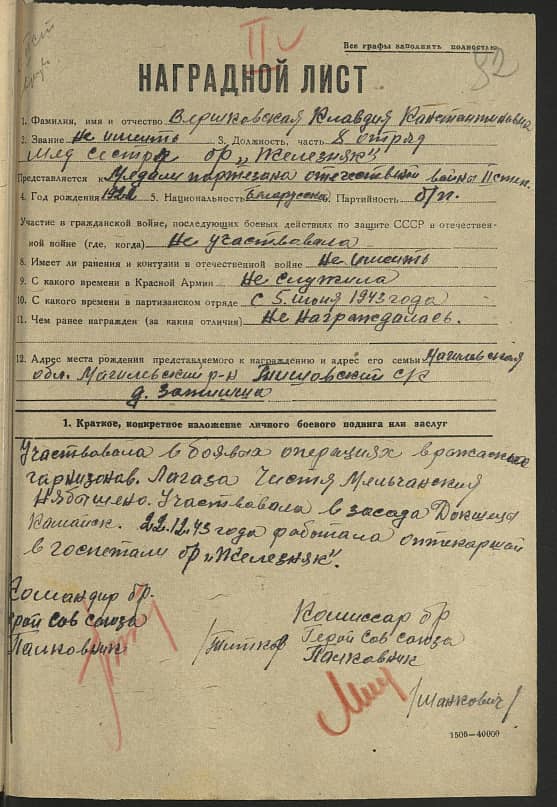 II
82
Все графы заполнять полностью
НАГРАДНОЙ ЛИСТ
1. Фамилия, имя и отчество Вершковская Клавдия Константиновна
2. Звание Не имеить 3. Должность, часть 8 отряд
Мед сестра бр „Железняк"
Представляется к Медали партезана отечествской войны II степ.
4. Год рождения 1922 5. Национальность Белорусска 6. Партийность б/п.
Участие в гражданской войне, последующих боевых действиях по защите СССР в отечествен-
ной войне (где, когда) Не участвовала
8. Имеет ли ранения и контузии в отечественной войне Не имеить
9. С какого времени в Красной Армии Не служила
10. С какого времени в партизанском отряде с 5 июня 1943 года
11. Чем ранее награжден (за какия отличия) Не Награждалась.
12. Адрес места рождения представляемого к награждению и адрес его семьи Магилевская
обл. Магилевский р-н с/с
д.
1. Краткое, конкретное изложение личного боевого подвига или заслуг
Участвовала в боевых операциях вражаских
гарнизонав. Лагаза Чистя Мельчанский
Нябышено. Участвовала в засада Докшица
Камайск. 22.12.43 года работала оптекаршой
в госпетали бр „Железняк".
Командир бр.
Герой Сов союза
Палковник /Титков
Комиссар бр
Герой Сов союза
Палковник
/Манкович/
1506—40000